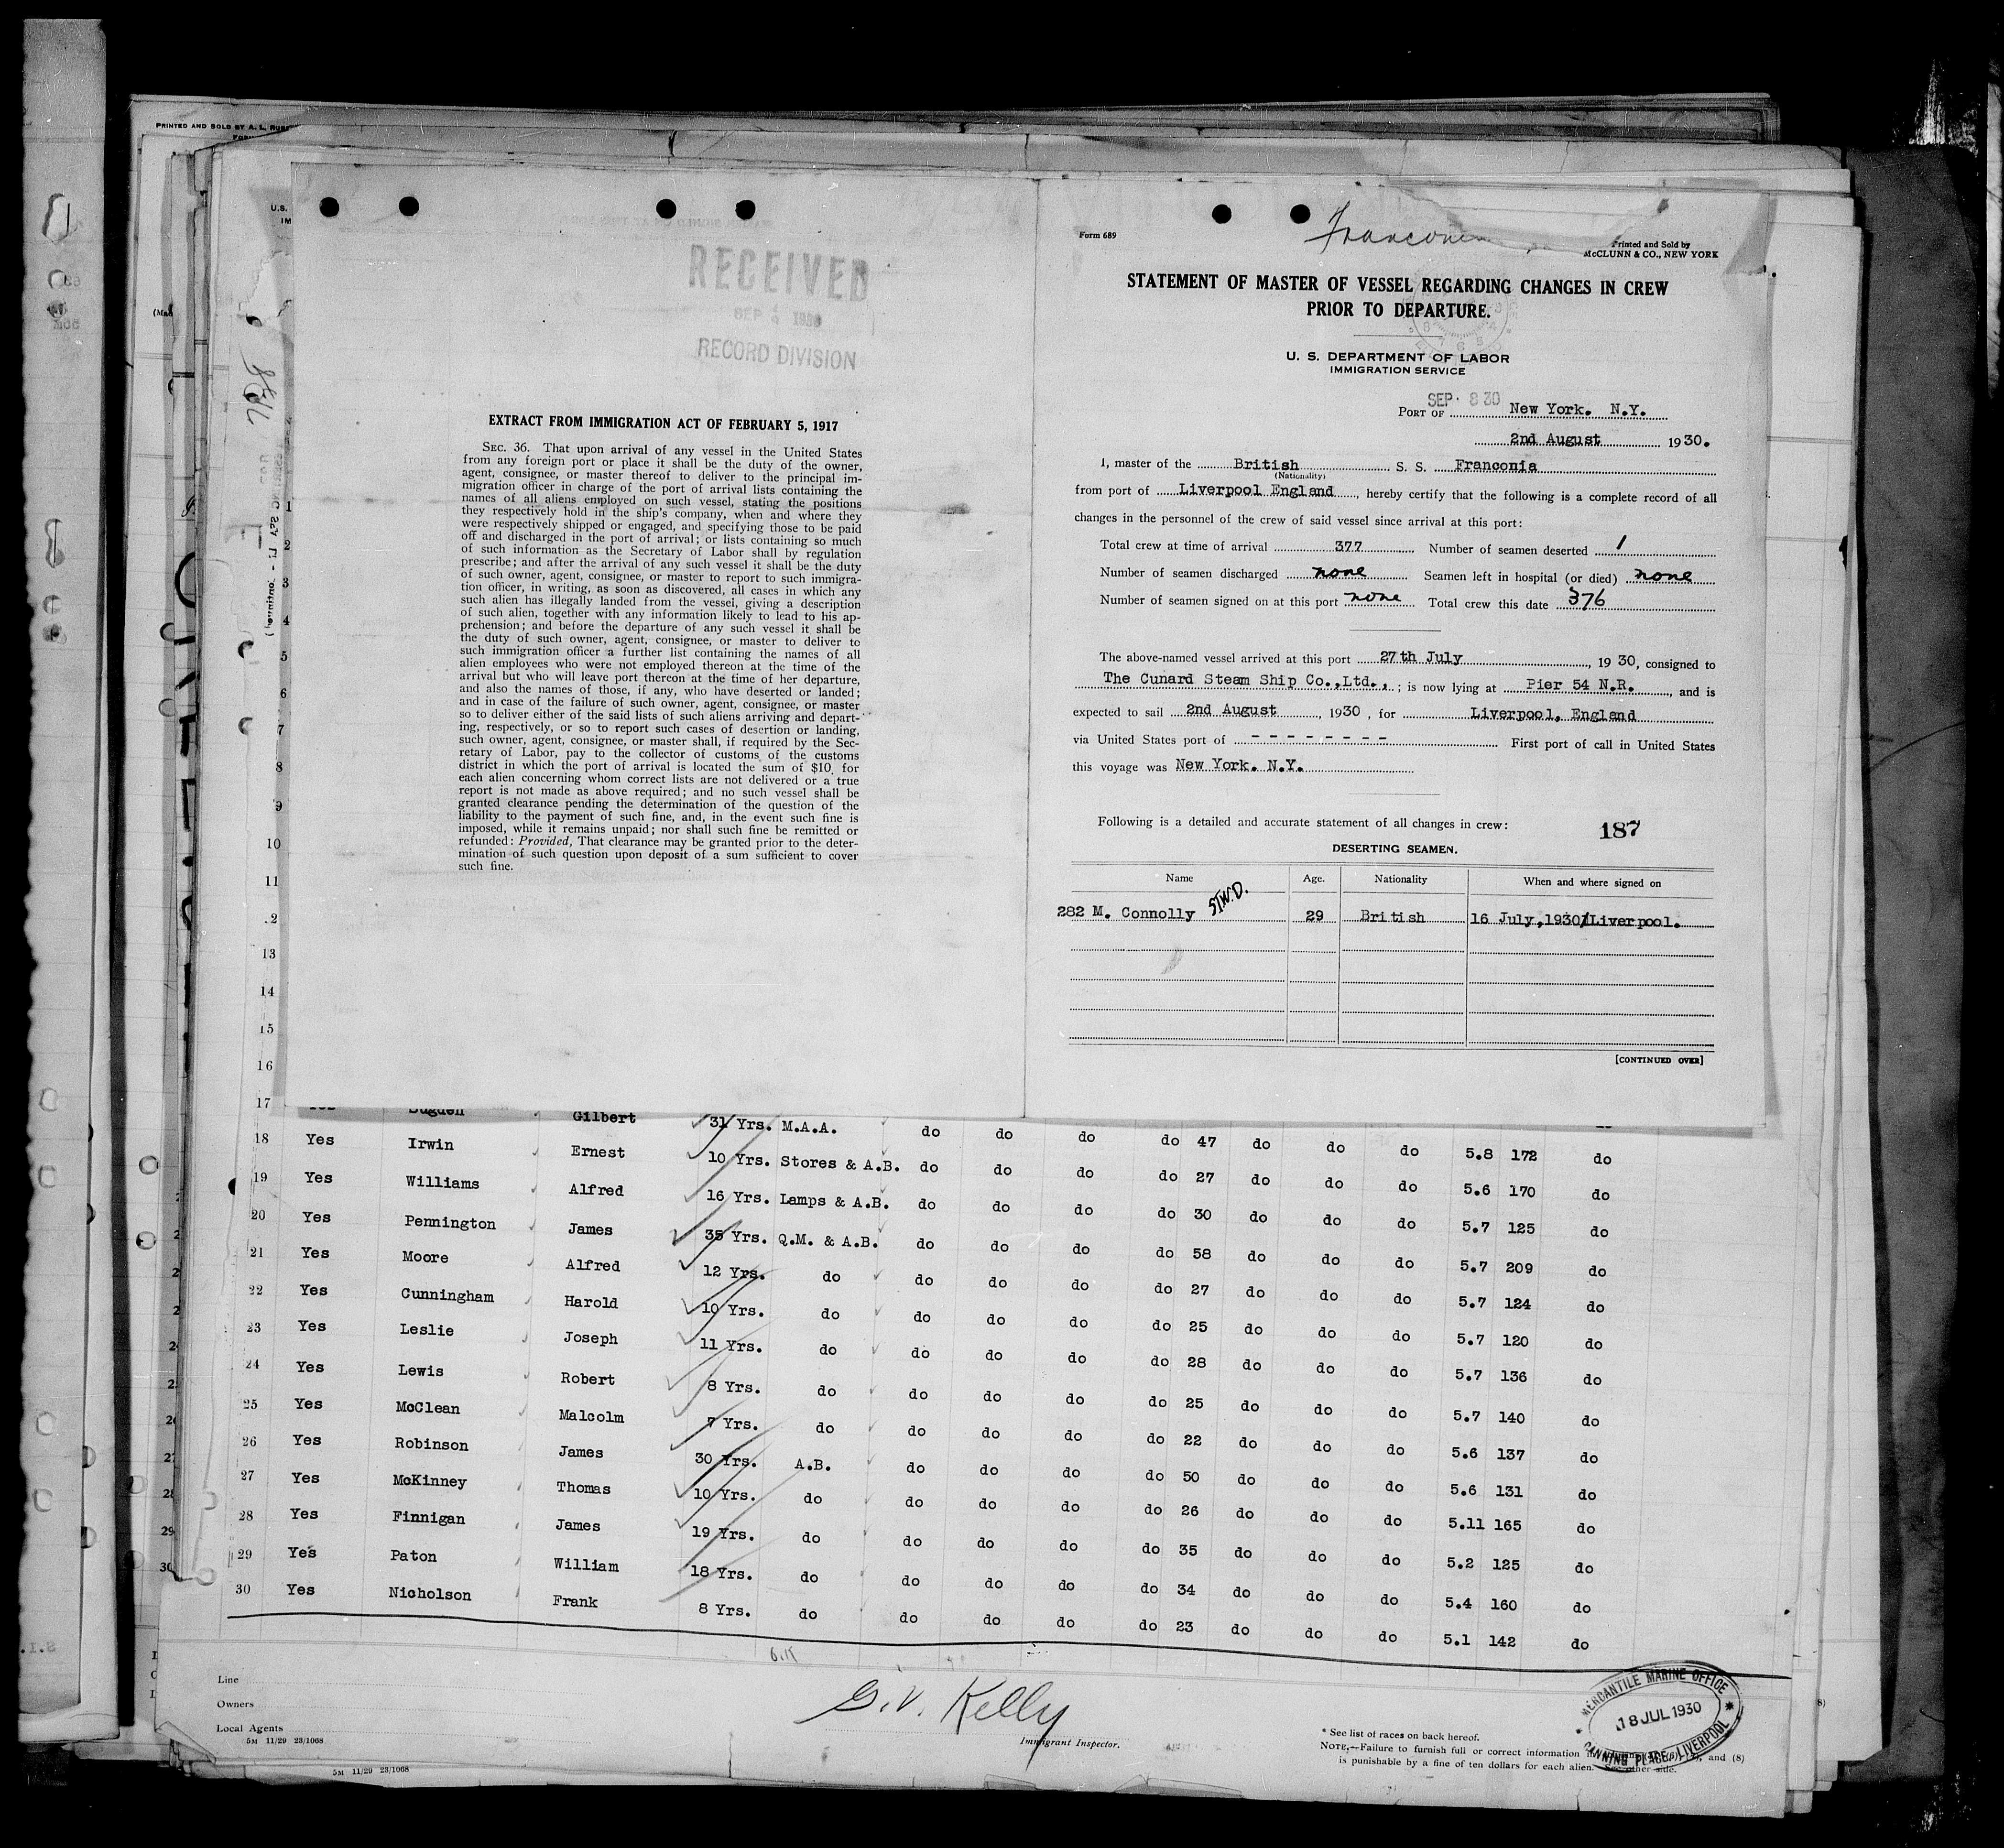 PRINTED AND SOLD BY A. L.
U.S.
RECEIVED
SEP 1930
RECORD DIVISION
EXTRACT FROM IMMIGRATION ACT OF FEBRUARY 5, 1917
SEC. 36. That upon arrival of any vessel in the United States
from any foreign port or place it shall be the duty of the owner,
agent, consignee, or master thereof to deliver to the principal im-
migration officer in charge of the port of arrival lists containing the
names of all aliens employed on such vessel, stating the positions
they respectively hold in the ship's company, when and where they
were respectively shipped or engaged, and specifying those to be paid
off and discharged in the port of arrival; or lists containing so much
of such information as the Secretary of Labor shall by regulation
prescribe; and after the arrival of any such vessel it shall be the duty
of such owner, agent, consignee, or master to report to such immigra-
tion officer, in writing, as soon as discovered, all cases in which any
such alien has illegally landed from the vessel, giving a description
of such alien, together with any information likely to lead to his ap-
prehension; and before the departure of any such vessel it shall be
the duty of such owner, agent, consignee, or master to deliver to
such immigration officer a further list containing the names of all
alien employees who were not employed thereon at the time of the
arrival but who will leave port thereon at the time of her departure,
and also the names of those, if any, who have deserted or landed;
and in case of the failure of such owner, agent, consignee, or master
so to deliver either of the said lists of such aliens arriving and depart-
ing, respectively, or so to report such cases of desertion or landing,
such owner, agent, consignee, or master shall, if required by the Sec-
retary of Labor, pay to the collector of customs of the customs
district in which the port of arrival is located the sum of $10 for
each alien concerning whom correct lists are not delivered or a true
report is not made as above required; and no such vessel shall be
granted clearance pending the determination of the question of the
liability to the payment of such fine, and, in the event such fine is
imposed, while it remains unpaid; nor shall such fine be remitted or
refunded: Provided, That clearance may be granted prior to the deter-
mination of such question upon deposit of a sum sufficient to cover
such fine.
Form 689
Franconia
Printed and Sold by
McCLUNN & CO., NEW YORK
STATEMENT OF MASTER OF VESSEL REGARDING CHANGES IN CREW
PRIOR TO DEPARTURE.
U. S. DEPARTMENT OF LABOR
IMMIGRATION SERVICE
SEP. 8 30
PORT OF New York. N.Y.
2nd August 1930.
I, master of the British S. S. Franconia
(Nationality)
from port of Liverpool England, hereby certify that the following is a complete record of all
changes in the personnel of the crew of said vessel since arrival at this port:
Total crew at time of arrival 377 Number of seamen deserted 1
Number of seamen discharged none Seamen left in hospital (or died) none
Number of seamen signed on at this port none Total crew this date 376
The above-named vessel arrived at this port 27th July, 1930, consigned to
The Cunard Steam Ship Co.,Ltd., ; is now lying at Pier 54 N.R., and is
expected to sail 2nd August, 1930, for Liverpool, England
via United States port of - - - - - - - - First port of call in United States
this voyage was New York. N.Y.
Following is a detailed and accurate statement of all changes in crew: 187
DESERTING SEAMEN.
Name Age. Nationality When and where signed on
282 M. Connolly STW.D. 29 British 16 July,1930/Liverpool.
[CONTINUED OVER]
1
2
3
4
5
6
7
8
9
10
11
13
14
15
16
17 Gilbert 31 Yrs. M.A.A. do do do do 47 do do do 5.8 172 do
18 Yes Irwin Ernest 10 Yrs. Stores & A.B. do do do do 27 do do do 5.6 170 do
19 Yes Williams Alfred 16 Yrs. Lamps & A.B. do do do do 30 do do do 5.7 125 do
20 Yes Pennington James 35 Yrs. Q.M. & A.B. do do do do 58 do do do 5.7 209 do
21 Yes Moore Alfred 12 Yrs. do do do do do 27 do do do 5.7 124 do
22 Yes Cunningham Harold 10 Yrs. do do do do do 25 do do do 5.7 120 do
23 Yes Leslie Joseph 11 Yrs. do do do do do 28 do do do 5.7 136 do
24 Yes Lewis Robert 8 Yrs. do do do do do 25 do do do 5.7 140 do
25 Yes McClean Malcolm 7 Yrs. do do do do do 22 do do do 5.6 137 do
26 Yes Robinson James 30 Yrs. A.B. do do do do 50 do do do 5.6 131 do
27 Yes McKinney Thomas 10 Yrs. do do do do do 26 do do do 5.11 165 do
28 Yes Finnigan James 19 Yrs. do do do do do 35 do do do 5.2 125 do
29 Yes Paton William 18 Yrs. do do do do do 34 do do do 5.4 160 do
30 Yes Nicholson Frank 8 Yrs. do do do do do 23 do do do 5.1 142 do
Line
Owners
Local Agents
5M 11/29 23/1068
G. V. Kelly
Immigrant Inspector.
* See list of races on back hereof.
NOTE.—Failure to furnish full or correct information and (8)
is punishable by a fine of ten dollars for each alien. See other side.
MERCANTILE MARINE OFFICE
18 JUL 1930
CANNING PLACE, LIVERPOOL
5M 11/29 23/1068